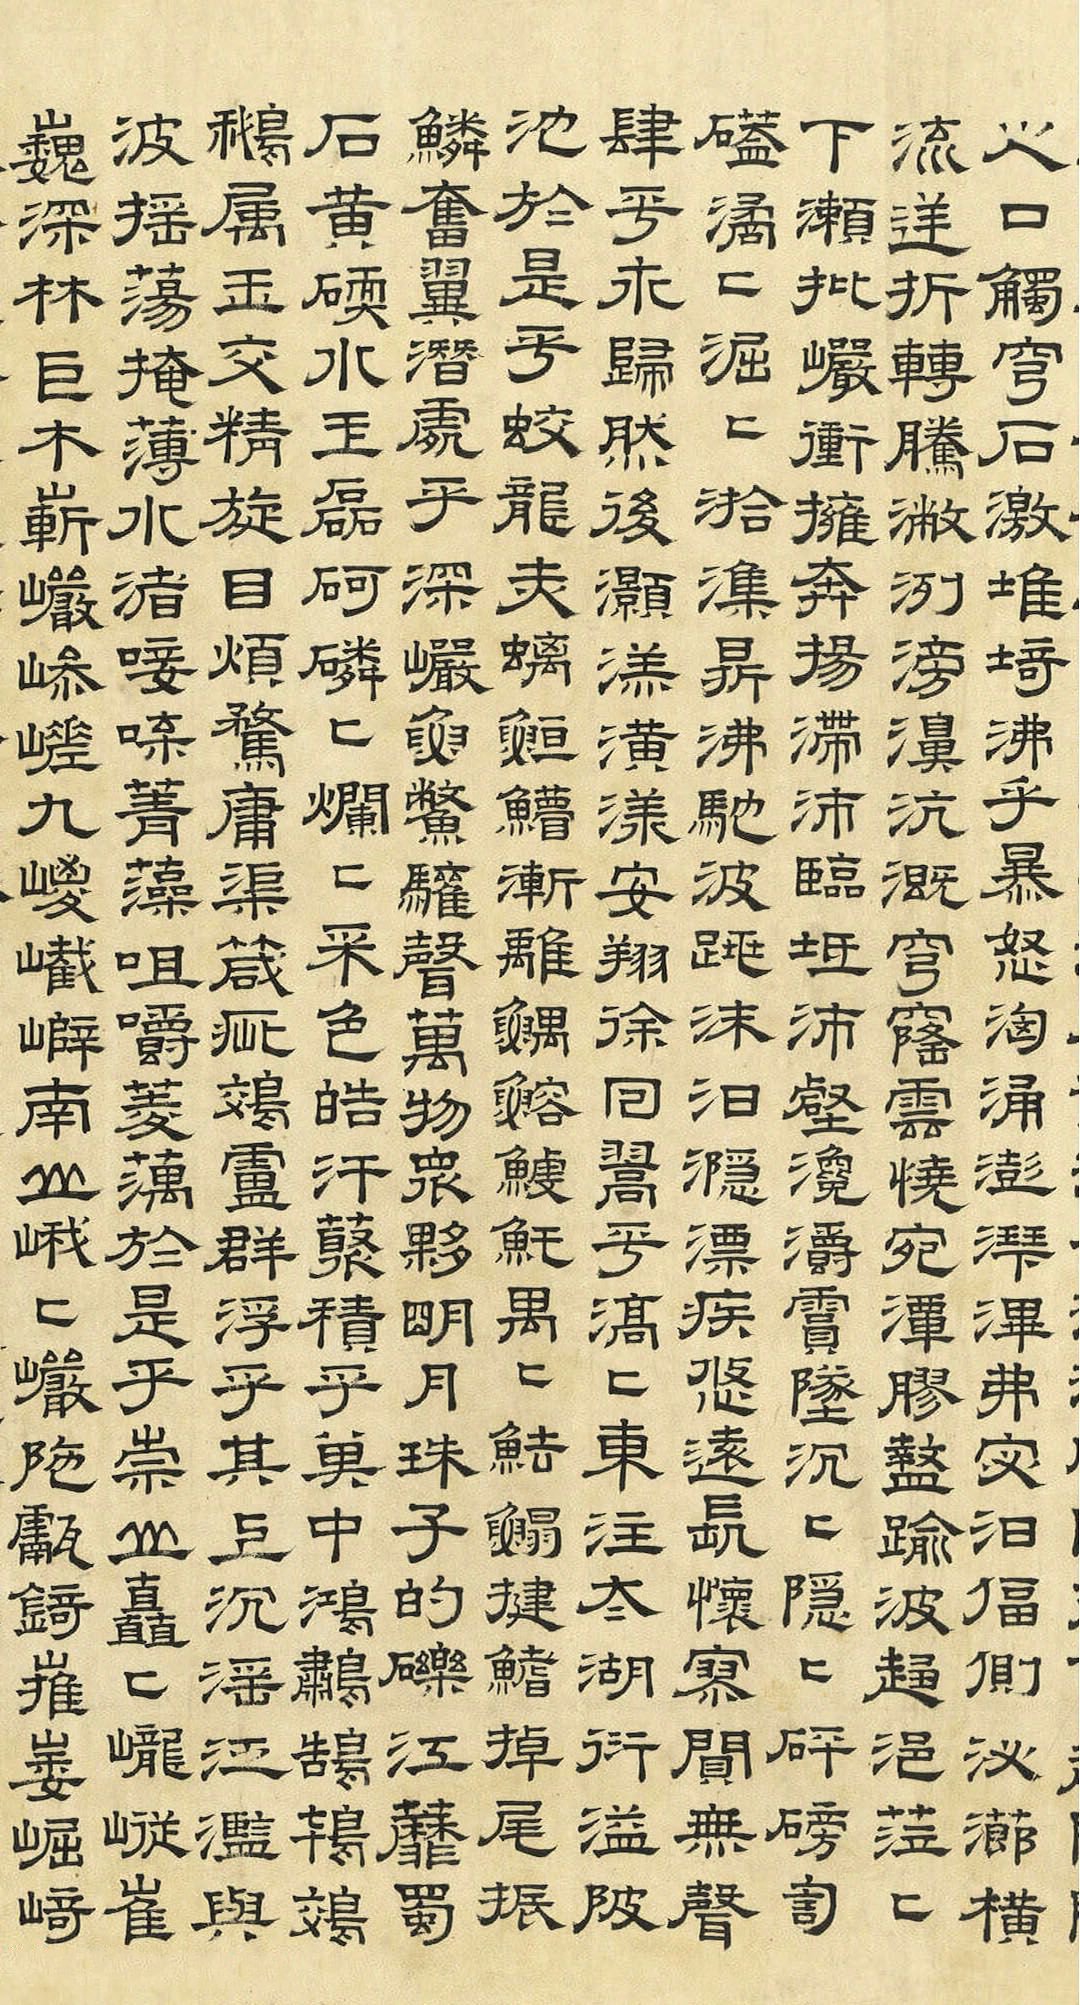 之口觸穹石激堆埼沸乎暴怒洶涌澎湃滭弗宓汩偪側泌瀄橫
流逆折轉騰潎洌滂濞沆溉穹窿雲橈宛潬膠盭踰波趨浥蒞〻
下瀨批巖衝擁奔揚滯沛臨坻沛壑瀺灂霣墜沉〻隱〻砰磅訇
磕潏〻淈〻湁潗鼎沸馳波跳沫汩濦漂疾悠遠長懷寥無聲
肆乎永歸然後灝溔潢漾安翔徐回翯乎滈〻東注太湖衍溢陂
池於是乎蛟龍赤螭䱎䲛漸離鰅鰫鰬魠禺〻魼鰨揵鰭掉尾振
鱗奮翼潛處乎深巖魚鱉驩聲萬物衆夥明月珠子的礫江靡蜀
石黃碝水玉磊砢磷〻爛〻采色皓汗藂積乎其中鴻鷫鵠鴇鴐
鵝屬玉交精旋目煩鶩庸渠箴疵鵁盧群浮乎其上沉淫泛濫與
波搖蕩掩薄水渚唼喋菁藻咀嚼菱藕於是乎崇山矗〻巃嵸崔
巍深林巨木嶄巖嵾嵯九嵕嶻嶭南山峨〻巖陁甗錡嶊崣崛崎